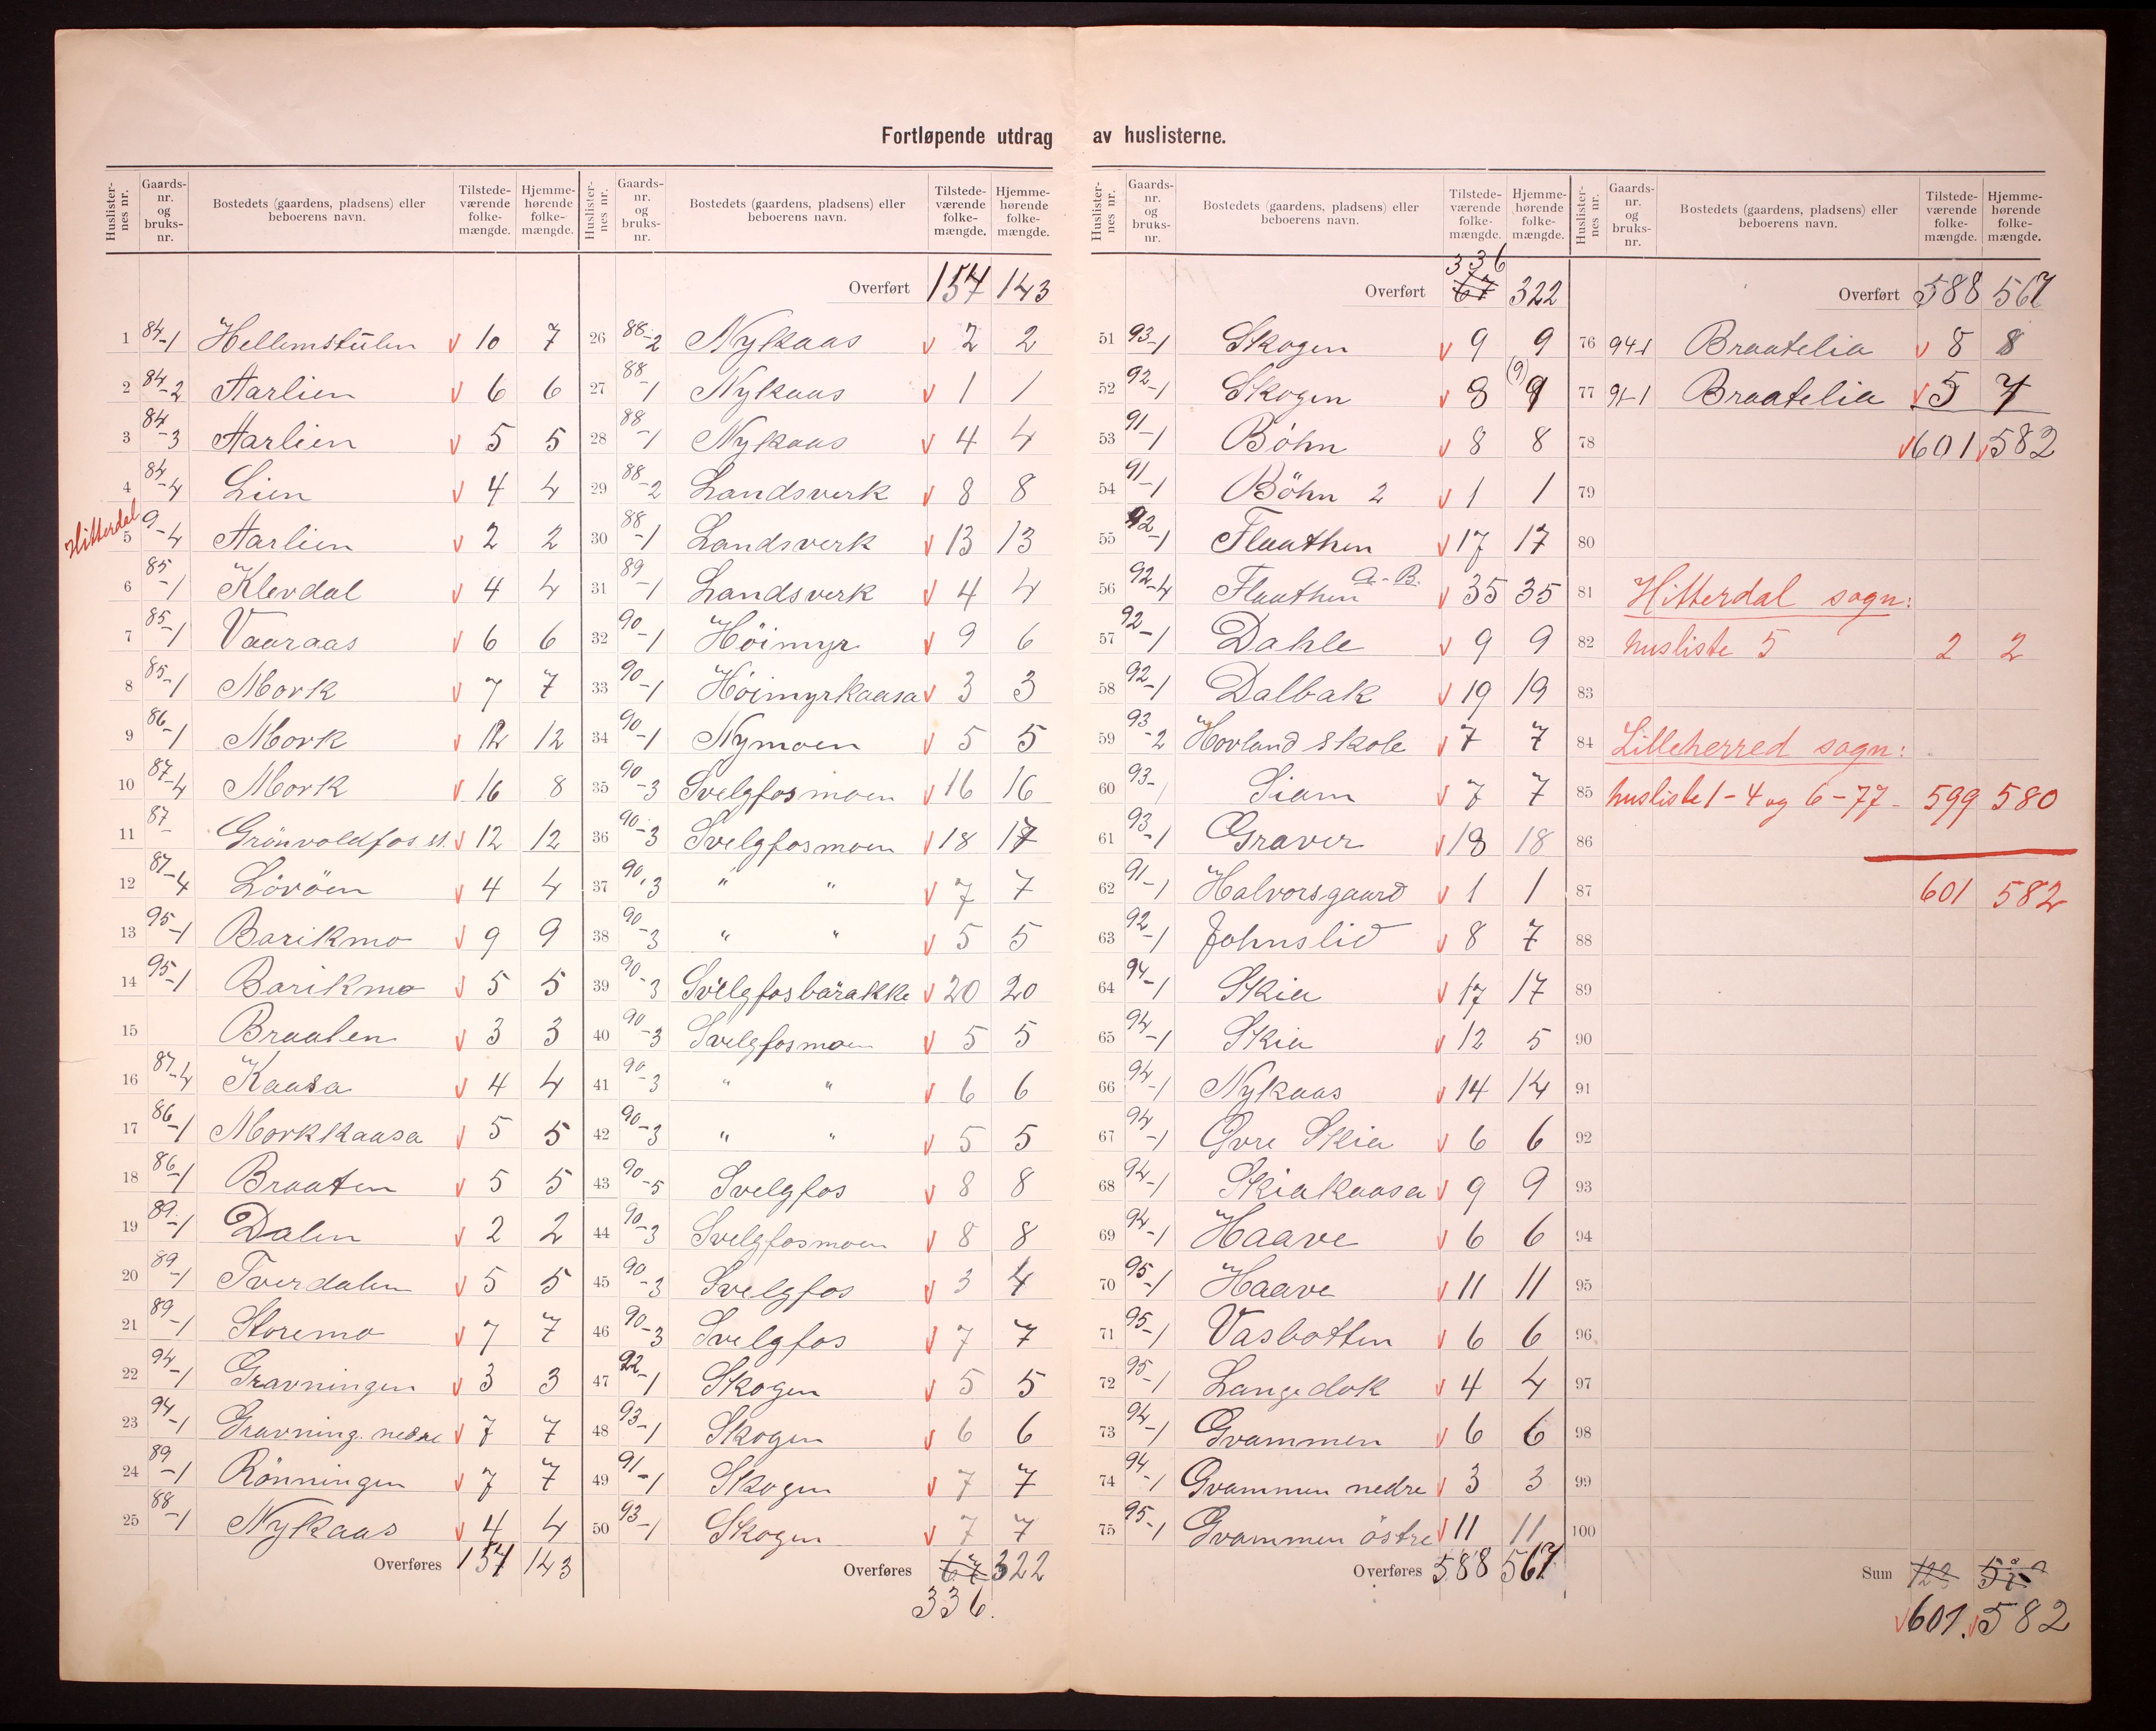 Fortløpende utdrag av huslisterne.
Huslister-nes nr. Gaards-nr. og bruks-nr. Bostedets (gaardens, pladsens) eller beboerens navn. Tilstede-værende folke-mængde. Hjemme-hørende folke-mængde.
1 84-1 Hellemstulen v 10 7
2 84-2 Aarlien v 6 6
3 84-3 Aarlien v 5 5
4 84-4 Lien v 4 4
Hitterdal
5 9-4 Aarlien v 2 2
6 85-1 Klevdal v 4 4
7 85-1 Vaaraas v 6 6
8 85-1 Mork v 7 7
9 86-1 Mork v 12 12
10 87-4 Mork v 16 8
11 87- Grönvoldfos st. v 12 12
12 87-4 Lövöen v 4 4
13 95-1 Barikmo v 9 9
14 95-1 Barikmo v 5 5
15 Braaten v 3 3
16 87-4 Kaasa v 4 4
17 86-1 Morkkaasa v 5 5
18 86-1 Braaten v 5 5
19 89-1 Dalen v 2 2
20 89-1 Tverdalen v 5 5
21 89-1 Storemo v 7 7
22 94-1 Gravningen v 3 3
23 94-1 Gravning. nedre v 7 7
24 89-1 Rönningen v 7 7
25 88-1 Nykaas v 4 4
Overføres 157 143
Huslister-nes nr. Gaards-nr. og bruks-nr. Bostedets (gaardens, pladsens) eller beboerens navn. Tilstede-værende folke-mængde. Hjemme-hørende folke-mængde.
Overført 157 143
26 88-2 Nykaas v 2 2
27 88-1 Nykaas v 1 1
28 88-1 Nykaas v 4 4
29 88-2 Landsverk v 8 8
30 88-1 Landsverk v 13 13
31 89-1 Landsverk v 4 4
32 90-1 Höimyr v 9 6
33 90-1 Höimyrkaasa v 3 3
34 90-1 Nymoen v 5 5
35 90-3 Svelgfosmoen v 16 16
36 90-3 Svelgfosmoen v 18 17
37 90,3 " " v 7 7
38 90-3 " " v 5 5
39 90-3 Svelgfosbarakke v 20 20
40 90-3 Svelgfosmoen v 5 5
41 90-3 " " v 6 6
42 90-3 " " v 5 5
43 90-5 Svelgfos v 8 8
44 90-3 Svelgfosmoen v 8 8
45 90-3 Svelgfos v 3 4
46 90-3 Svelgfos v 7 7
47 92-1 Skogen v 5 5
48 93-1 Skogen v 6 6
49 91-1 Skogen v 7 7
50 93-1 Skogen v 7 7
Overføres 67 322
336.
Huslister-nes nr. Gaards-nr. og bruks-nr. Bostedets (gaardens, pladsens) eller beboerens navn. Tilstede-værende folke-mængde. Hjemme-hørende folke-mængde.
336
Overført 67 322
51 93-1 Skogen v 9 9
52 92-1 Skogen v 8 (9) 9
53 91-1 Böhn v 8 8
54 91-1 Böhn 2 v 1 1
55 92-1 Flaathen v 17 17
56 92-4 Flaathen A-B. v 35 35
57 92-1 Dahle v 9 9
58 92-1 Dalbak v 19 19
59 93-2 Hovland skole v 7 7
60 93-1 Siam v 7 7
61 93-1 Graver v 18 18
62 91-1 Halvorsgaard v 1 1
63 92-1 Johnslid v 8 7
64 94-1 Skia v 17 17
65 94-1 Skia v 12 5
66 94-1 Nykaas v 14 14
67 94-1 Øvre Skia v 6 6
68 94-1 Skiakaasa v 9 9
69 94-1 Haave v 6 6
70 95-1 Haave v 11 11
71 95-1 Vasbotten v 6 6
72 95-1 Langedok v 4 4
73 94-1 Gvammen v 6 6
74 94-1 Gvammen nedre v 3 3
75 95-1 Gvammen östre v 11 11
Overføres 588 567
Huslister-nes nr. Gaards-nr. og bruks-nr. Bostedets (gaardens, pladsens) eller beboerens navn. Tilstede-værende folke-mængde. Hjemme-hørende folke-mængde.
Overført 588 567
76 94-1 Braatelia v 8 8
77 91-1 Braatelia v 5 7
78 v 601 v 582
79
80
81 Hitterdal sogn:
82 husliste 5 2 2
83
84 Lilleherred sogn:
85 husliste 1-4 og 6-77- 599 580
86
87 601 582
88
89
90
91
92
93
94
95
96
97
98
99
100
Sum
v 601. v 582